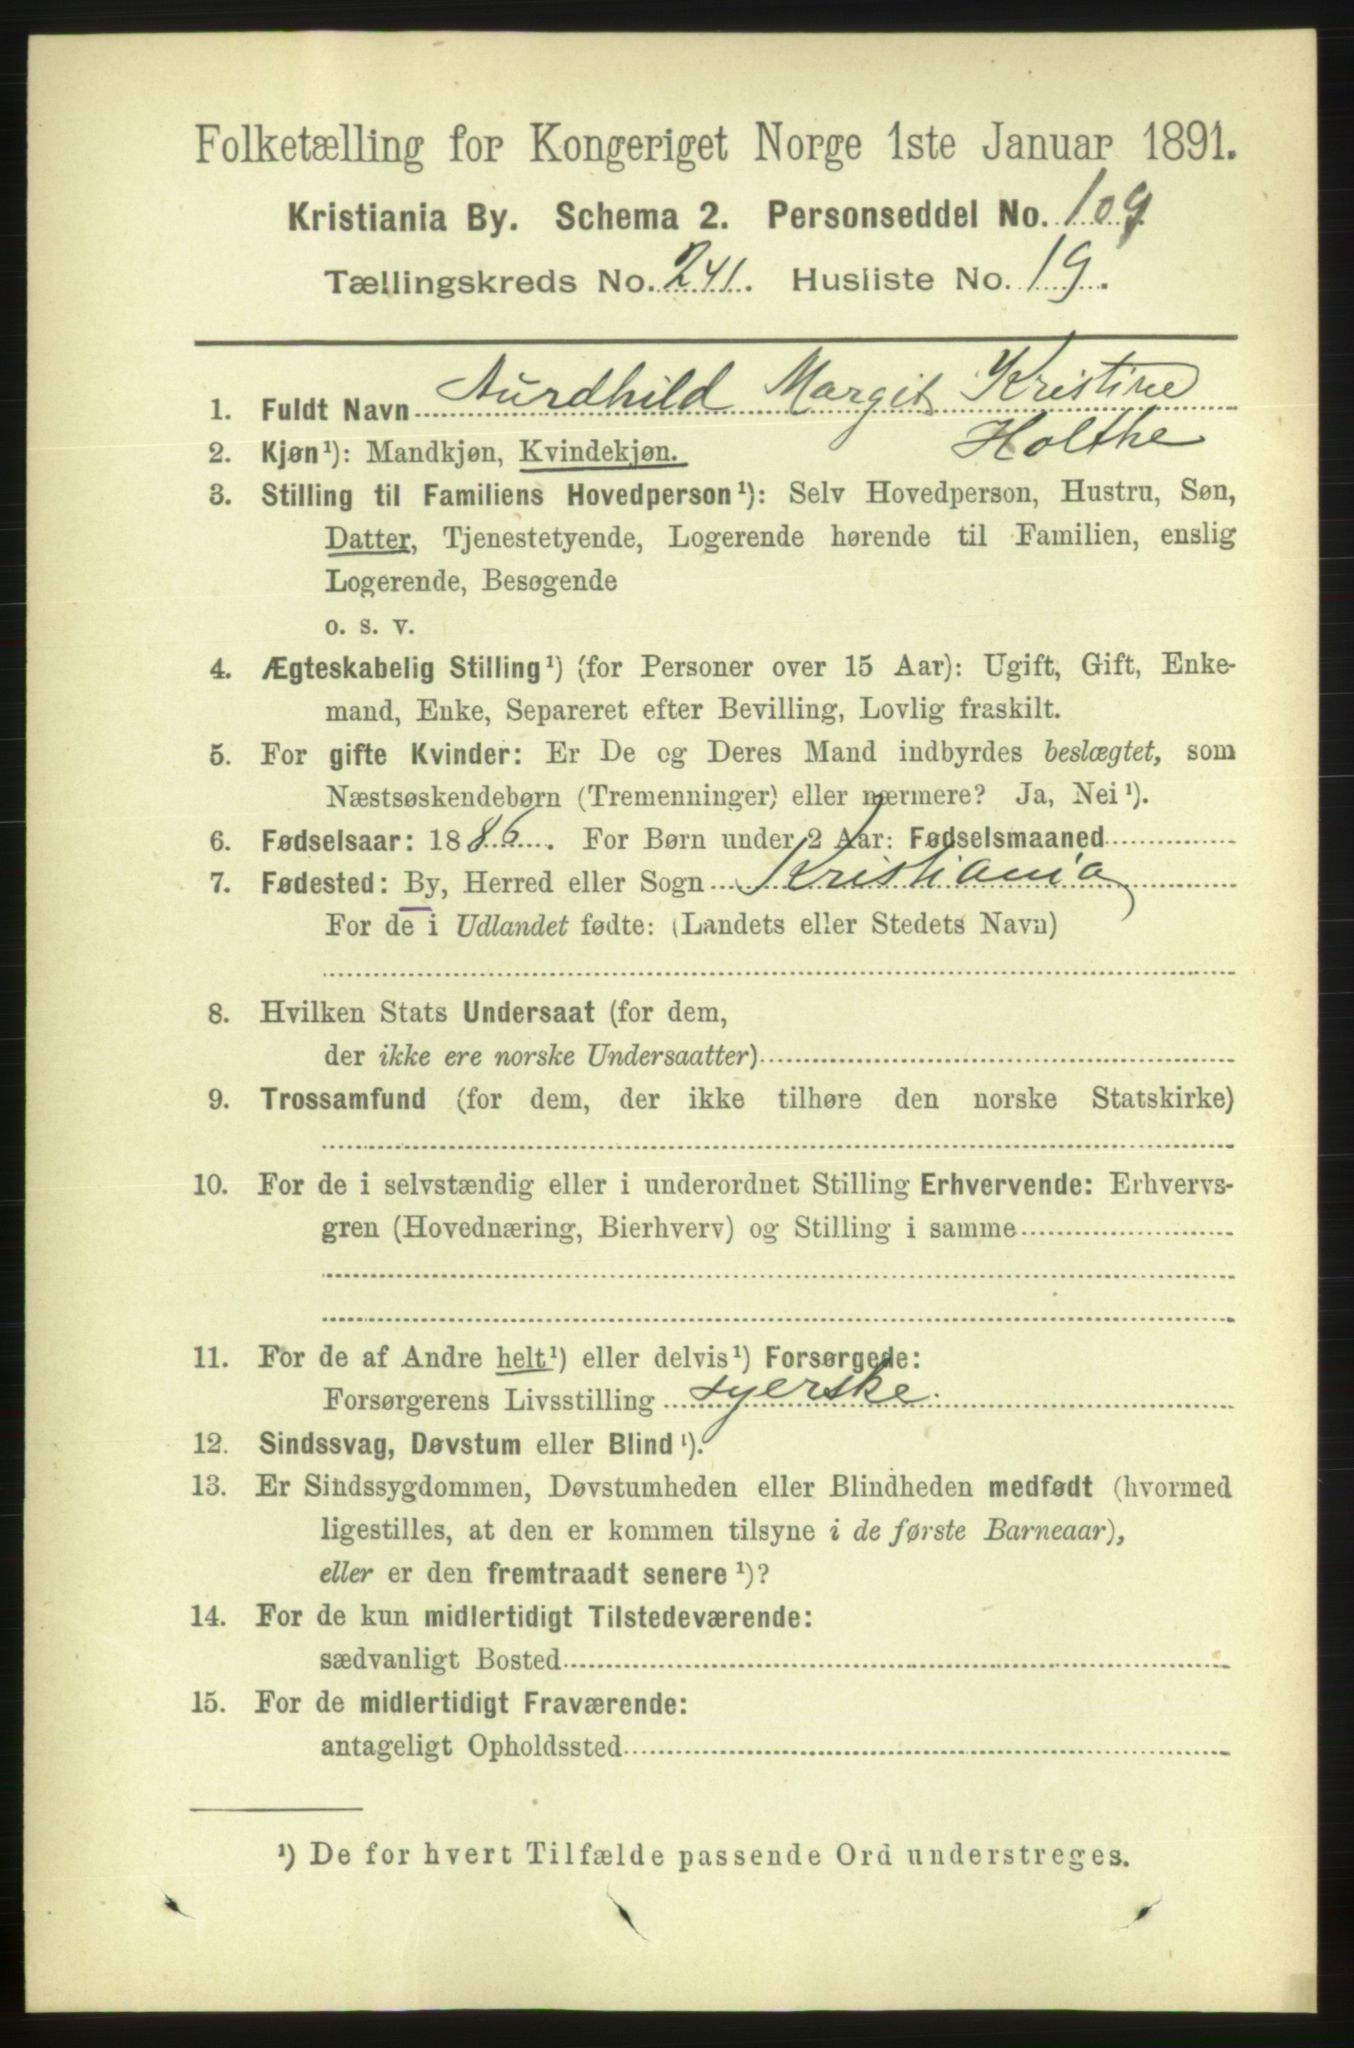 Folketælling for Kongeriget Norge 1ste Januar 1891.
Kristiania By. Schema 2. Personseddel No. 109
Tællingskreds No. 241. Husliste No. 19.
1. Fuldt Navn Aurdhild Margit Kristine
Holthe
2. Kjøn¹): Mandkjøn, Kvindekjøn.
3. Stilling til Familiens Hovedperson¹): Selv Hovedperson, Hustru, Søn,
Datter, Tjenestetyende, Logerende hørende til Familien, enslig
Logerende, Besøgende
o. s. v.
4. Ægteskabelig Stilling¹) (for Personer over 15 Aar): Ugift, Gift, Enke-
mand, Enke, Separeret efter Bevilling, Lovlig fraskilt.
5. For gifte Kvinder: Er De og Deres Mand indbyrdes beslægtet, som
Næstsøskendebørn (Tremenninger) eller nærmere? Ja, Nei¹).
6. Fødselsaar: 1886. For Børn under 2 Aar: Fødselsmaaned
7. Fødested: By, Herred eller Sogn Kristiania
For de i Udlandet fødte: (Landets eller Stedets Navn)
8. Hvilken Stats Undersaat (for dem,
der ikke ere norske Undersaatter)
9. Trossamfund (for dem, der ikke tilhøre den norske Statskirke)
10. For de i selvstændig eller i underordnet Stilling Erhvervende: Erhvervs-
gren (Hovednæring, Bierhverv) og Stilling i samme
11. For de af Andre helt¹) eller delvis¹) Forsørgede:
Forsørgerens Livsstilling syerske.
12. Sindssvag, Døvstum eller Blind¹).
13. Er Sindssygdommen, Døvstumheden eller Blindheden medfødt (hvormed
ligestilles, at den er kommen tilsyne i de første Barneaar),
eller er den fremtraadt senere¹)?
14. For de kun midlertidigt Tilstedeværende:
sædvanligt Bosted
15. For de midlertidigt Fraværende:
antageligt Opholdssted
¹) De for hvert Tilfælde passende Ord understreges.